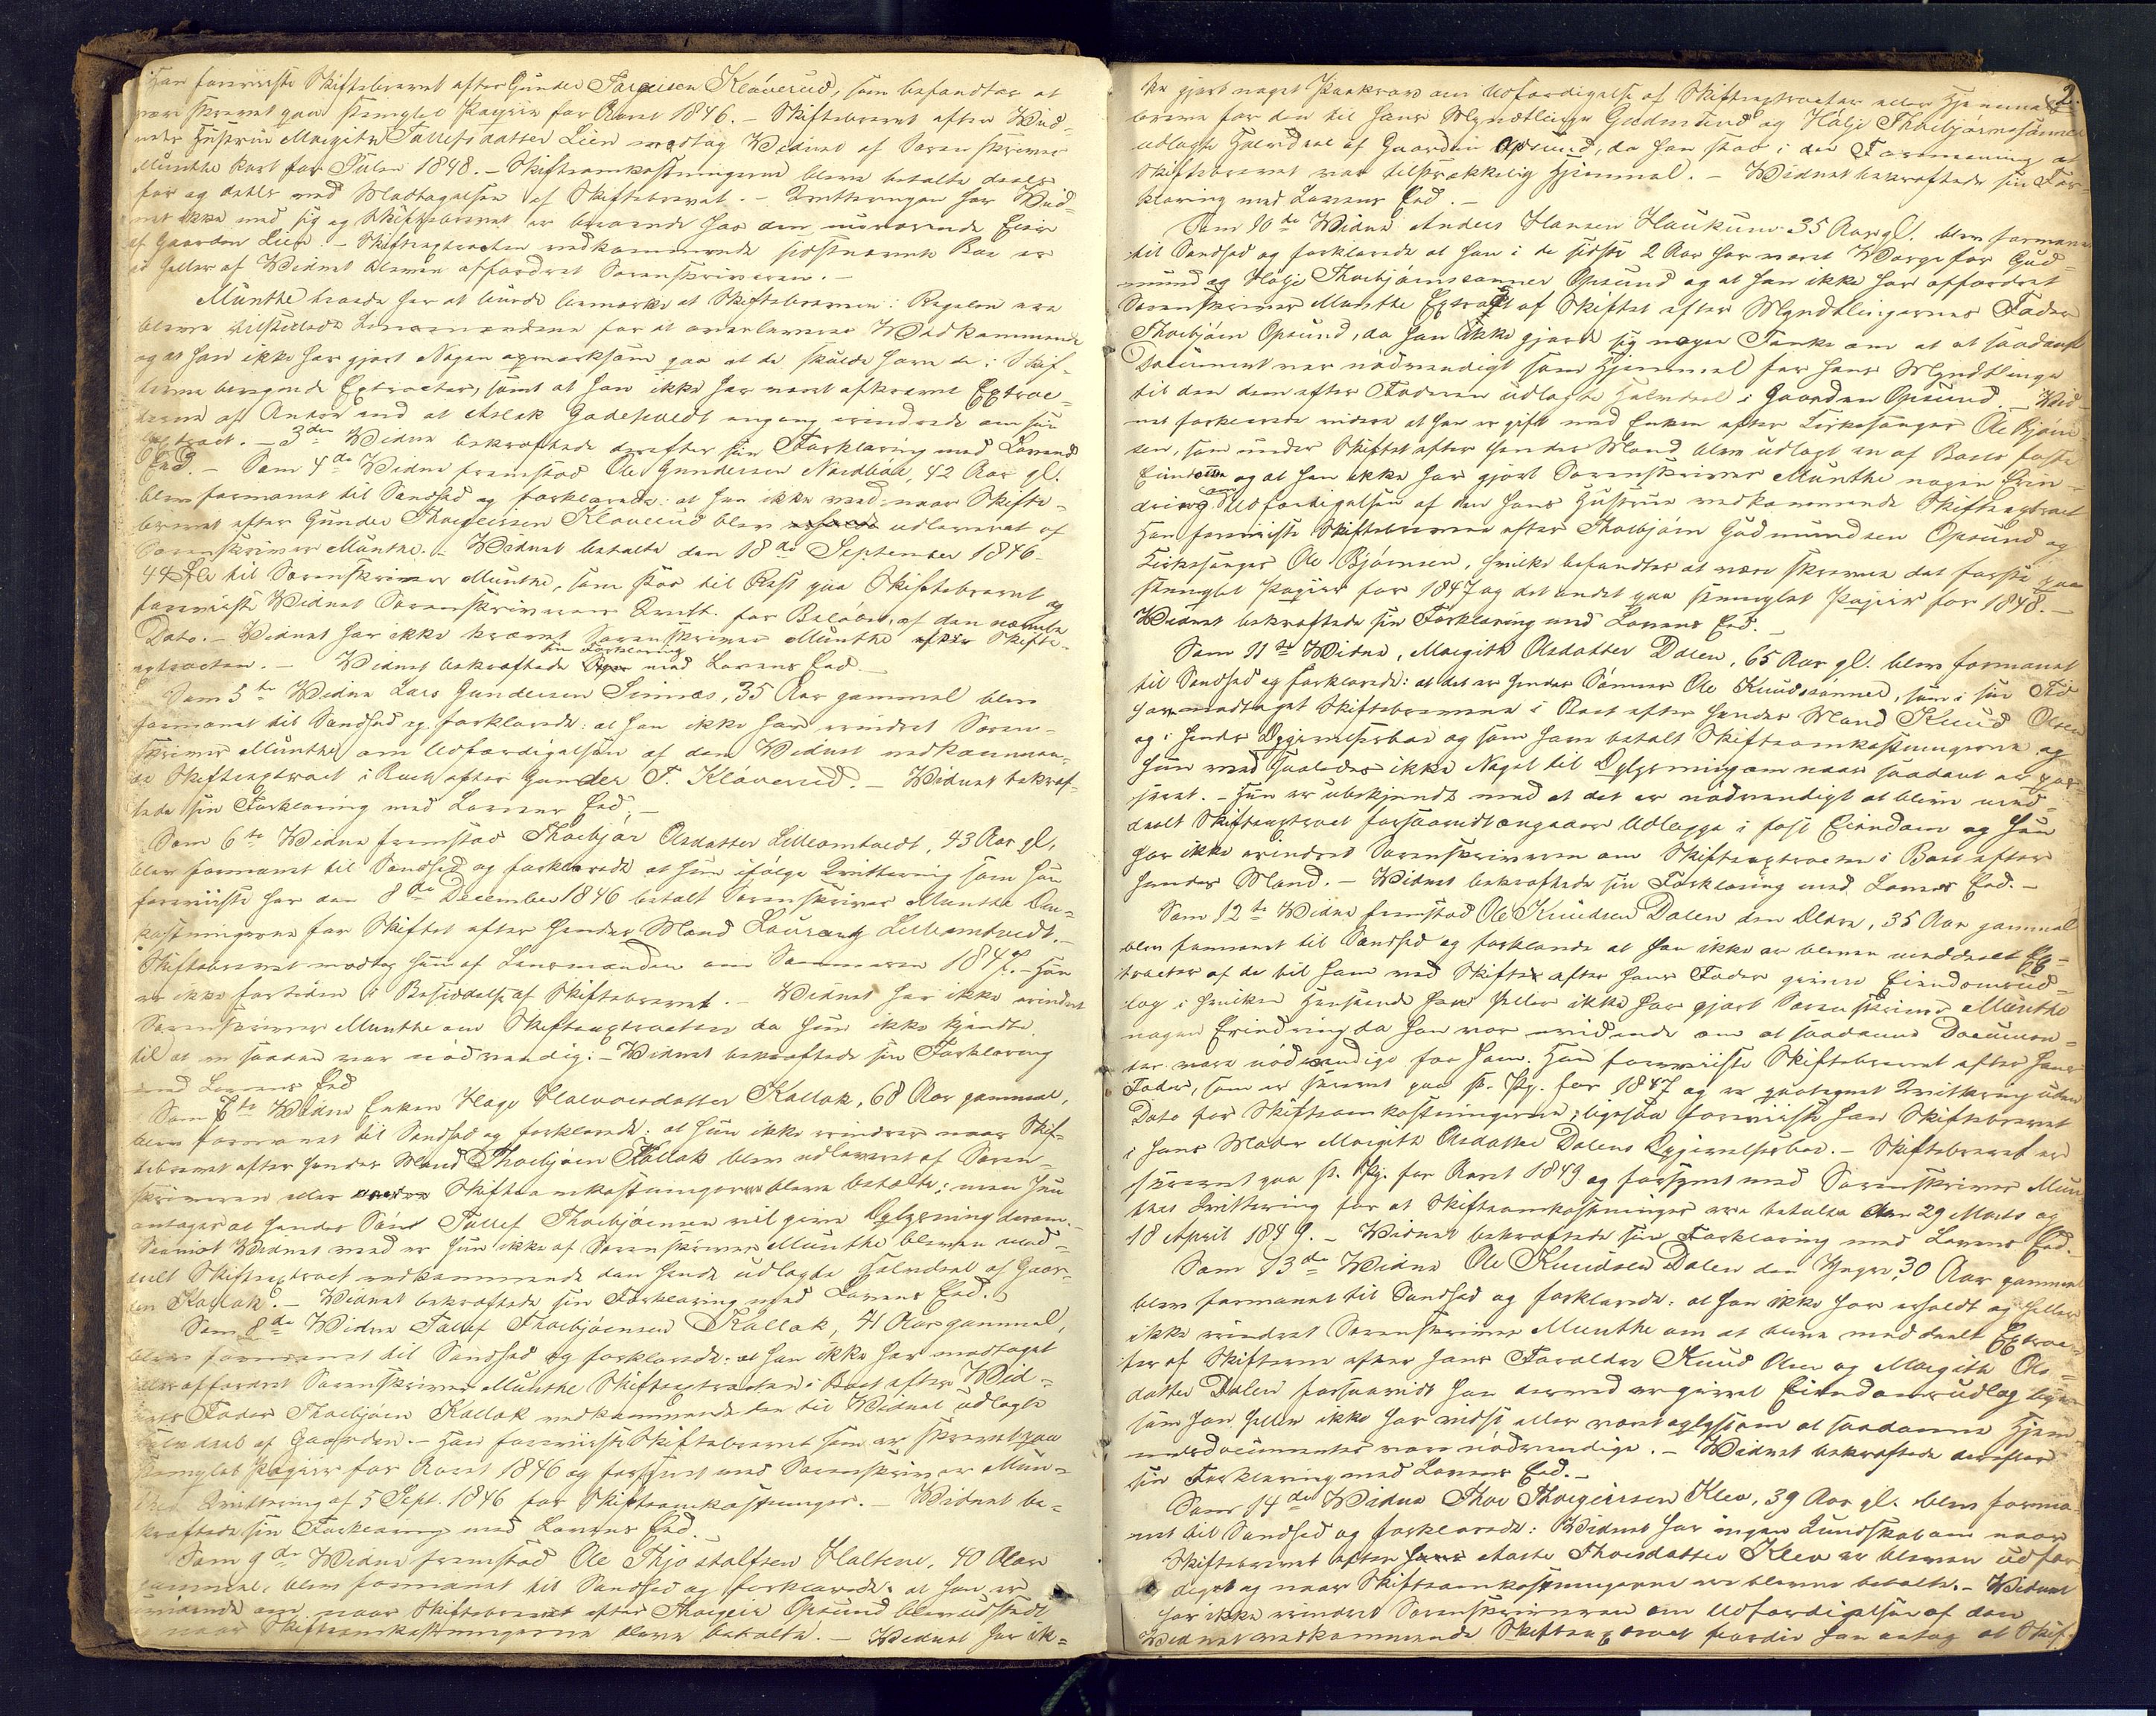 Han foreviiste Skiftebrevet efter Gunder Torgeirsen Kløverud, som befandtes at
være skrevet paa stemplet Papiir for Aaret 1846. – Skiftebrevet efter Vid-
nets Hustrue Margith Tallefsdatter Lien modtog Vidnet af Sorenskriver
Munthe kort før Julen 1848. – Skifteomkostningerne bleve betalte deels
før og deels ved Modtagelsen af Skiftebrevet. – Qvitteringen har Vid-
net ikke med sig og Skiftebrevet er beroende hos den nuværende Eier
af Gaarden Lien. – Skifteextracten vedkommende sidstnævnte Boe er
ei heller af Vidnet bleven affordret Sorenskriveren. –
Munthe troede her at burde bemærke at Skiftebrevene i Regelen ere
blevne tilstillede Lensmændene for at overleveres Vedkommende
og at han ikke har gjort Nogen opmærksom paa at de skulde have de i Skif-
terne beroende Extracter, samt at han ikke har været afkrævet Extrac-
terne af Andre end at Aslak Gadeholdt engang erindrede om sin
Extract. – 3die Vidne bekræftede derefter sin Forklaring med Lovens
Eed. – Som 4de Vidne fremstod Ole Gundersen Nordboe, 42 Aar gl.
blev formanet til Sandhed og forklarede: at han ikke veed naar Skifte-
brevet efter Gunder Thorgeirsen Kløverud blev udleveret af
Sorenskriver Munthe. – Vidnet betalte den 18de September 1846
44 til Sorenskriver Munthe, som stod til Rest paa Skiftebrevet og
foreviiste Vidnet Sorenskriverens Qvitt. for Beløbet, af den nævnte
Dato. – Vidnet har ikke krævet Sorenskriver Munthe efter Skifte-
extracten. – Vidnet bekræftede sin Forklaring med Lovens Eed. –
Som 5te Vidne Lars Gundersen Sinnes, 35 Aar gammel blev
formanet til Sandhed og forklarede: at han ikke har erindret Soren-
skriver Munthe om Udfærdigelsen af den Vidnet vedkommen-
de Skifteextract i Boet efter Gunder T. Kløverud. – Vidnet bekræf-
tede sin Forklaring med Lovens Eed. –
Som 6te Vidne fremstod Thorbjør Olsdatter Lilleomtvedt, 43 Aar gl,
blev formanet til Sandhed og forklarede at hun ifølge Qvittering som hun
foreviiste har den 8de December 1846 betalt Sorenskriver Munthe Om-
kostningerne for Skiftet efter hendes Mand Laurantz Lilleomtvedt. –
Skiftebrevet modtog hun af Lensmanden om Sommeren 1847. – Hun
er ikke fortiden i Besiddelse af Skiftebrevet. – Vidnet har ikke erindret
Sorenskriver Munthe om Skifteextracten da hun ikke kjendte
til at en saadan var nødvendig. – Vidnet bekræftede sin Forklaring
med Lovens Eed
Som 7de Vidne Enken Hage Halvorsdatter Kallak, 68 Aar gammel,
blev formanet til Sandhed og forklarede: at hun ikke erindrer naar Skif-
tebrevet efter hendes Mand Thorbjørn Kallak blev udleveret af Soren-
skriveren eller Skifteomkostningerne bleve betalte; men hun
antager at hendes Søn Tallef Thorbjørnsen vil give Oplysning derom. –
Saavidt Vidnet veed er hun ikke af Sorenskriver Munthe bleven med-
deelt Skifteextract vedkommende den hende udlagte Halvdeel af Gaar-
den Kallak. – Vidnet bekræftede sin Forklaring med Lovens Eed. –
Som 8de Vidne Tallef Thorbjørnsen Kallak, 41 Aar gammel,
blev formanet til Sandhed og forklarede: at han ikke har modtaget
eller affordret Sorenskriver Munthe Skifteextracten i Boet efter Vid-
nets Fader Thorbjørn Kallak vedkommende den til Vidnet udlagte
Halvdeel af Gaarden. – Han foreviiste Skiftebrevet som er skrevet paa
stemplet Papiir for Aaret 1846 og forsynet med Sorenskriver Mun-
thes Qvittering af 5 Sept. 1846 for Skifteomkostninger. – Vidnet be-
kræftede sin Forklaring med Lovens Eed. –
Som 9de Vidne fremstod Ole Thjostolfsen Haltene, 40 Aar
gammel, blev formanet til Sandhed og forklarede: at han er
uvidende om naar Skiftebrevet efter Thorgeir Opsund blev udstedt
naar Skifteomkostningerne bleve betalte. – Vidnet har ik-
2.
ke gjort noget Paakrav om Udfærdigelse af Skifteextracter eller Hjemmels-
breve for den til hans Myndtlinge Gudmund og Hølje Thorbjørnssønner
udlagte Halvdeel af Gaarden Opsund, da han stod i den Formening at
Skiftebrevet var tilstrækkelig Hjemmel. – Vidnet bekræftede sin For-
klaring med Lovens Eed. –
Som 10de Vidne Anders Hansen Haukum 35 Aar gl. blev formanet
til Sandhed og forklarede at han i de sidste 2 Aar har været Værge for Gud-
mund og Hølje Thorbjørnssønner Opsund og at han ikke har affordret
Sorenskriver Munthe Extract af Skiftet efter Myndtlingernes Fader
Thorbjørn Opsund, da han ikke gjorde sig nogen Tanke om at et saadant
Document var nødvendigt som Hjemmel for hans Myndtlinge
til den dem efter Faderen udlagte Halvdeel i Gaarden Opsund. – Vid-
net forklarede videre at han er gift med Enken efter Kirkesanger Ole Bjørn-
sen, som under Skiftet efter hendes Mand blev udlagt en af Boets faste
Eiendomme og at han ikke har gjort Sorenskriver Munthe nogen Erin-
dring om Udfærdigelsen af den hans Hustrue vedkommende Skifteextract
Han foreviiste Skiftebrevene efter Thorbjørn Gudmundsen Opsund og
Kirkesanger Ole Bjørnsen, hvilke befandtes at være skrevne det første paa
stemplet Papiir for 1847 og det andet paa stemplet Papiir for 1848. –
Vidnet bekræftede sin Forklaring med Lovens Eed. –
Som 11te Vidne, Margith Olsdatter Dalen, 65 Aar gl. blev formanet
til Sandhed og forklarede: at det er hendes Sønner Ole Knudssønner, som i sin Tid
har modtaget Skiftebrevene i Boet efter hendes Mand Knud Olsen
og i hendes Opgivelsesbo og som have betalt Skifteomkostningerne og
hun veed saaledes ikke Noget til Oplysning om naar saadant er pas-
seret. – Hun er ubekjendt med at det er nødvendigt at blive med-
deelt Skifteextract forsaavidt angaaer Udlægge i fast Eiendom og hun
har ikke erindret Sorenskriveren om Skifteextracten i Boet efter
hendes Mand. – Vidnet bekræftede sin Forklaring med Lovens Eed. –
Som 12te Vidne fremstod Ole Knudsen Dalen den Ældre, 35 Aar gammel
blev formanet til Sandhed og forklarede at han ikke er bleven meddeelt Ex-
tracter af de til ham ved Skiftet efter hans Fader givne Eiendomsud-
læg i hvilken Henseende han heller ikke har gjort Sorenskriver Munthe
nogen Erindring da han var uvidende om at saadanne Documen-
ter vare nødvendige for ham. Han foreviiste Skiftebrevet efter hans
Fader, som er skrevet paa st. Pp. for 1847 og er paategnet Qvittering uden
Dato for Skifteomkostningerne; ligesaa foreviiste han Skiftebrevet
i hans Moder Margith Olsdatter Dalens Opgivelsesbo. – Skiftebrevet er
skrevet paa st. Pp. for Aaret 1849 og forsynet med Sorenskriver Mun-
thes Qvittering for at Skifteomkostninger ere betalte den 29 Marts og
18 April 1849. – Vidnet bekræftede sin Forklaring med Lovens Eed. –
Som 13de Vidne Ole Knudsen Dalen den Yngre, 30 Aar gammel
blev formanet til Sandhed og forklarede: at han ikke har erholdt og heller
ikke erindret Sorenskriver Munthe om at blive meddeelt Extrac-
ter af Skifterne efter hans Forældre Knud Olsen og Margith Ols-
datter Dalen forsaavidt han derved er givet Eiendomsudlæg lige-
som han heller ikke har vidst eller været oplyst om at saadanne Hjem-
melsdocumenter vare nødvendige. – Vidnet bekræftede derefter
sin Forklaring med Lovens Eed. –
Som 14de Vidne Thor Thorgeirsen Klev, 39 Aar gl. blev forma-
net til Sandhed og forklarede: Vidnet har ingen Kundskab om naar
Skiftebrevet efter Aaste Thorsdatter Klev er bleven udfær-
diget og naar Skifteomkostningerne ere blevne betalte. – Vidnet
har ikke erindret Sorenskriveren om Udfærdigelsen af den
Vidnet vedkommende Skifteextract fordi han antog at Skif-